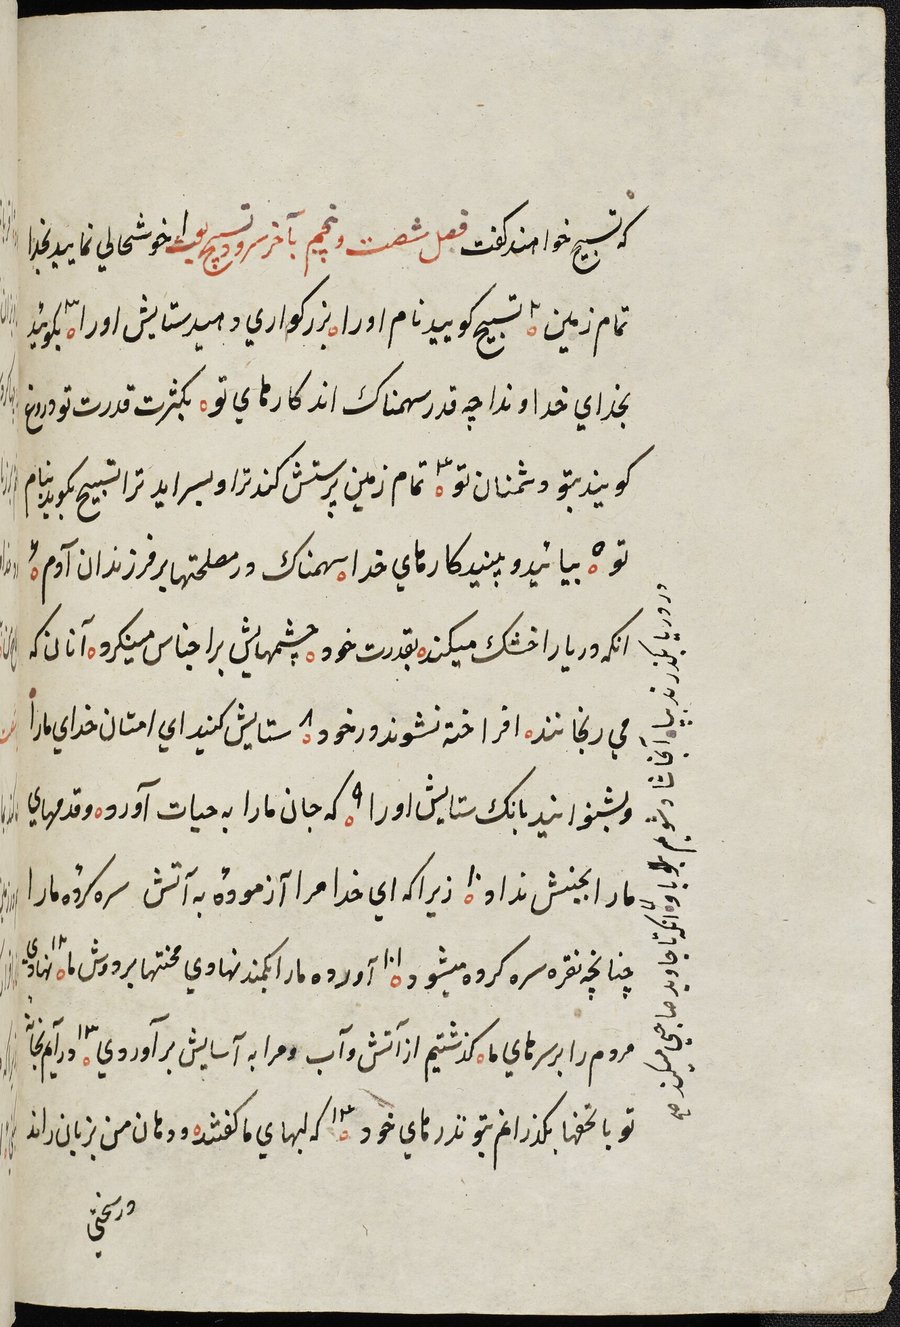 که تسبیح خواهند گفت فصل شصت و پنجم بآخر سرود تسبیح یوبت ۱ خوشحالي نمایید بخدا
تمام زمین ۲ تسبیح کویید نام اورا بزرکواري دهید ستایش اورا ۳ بکوئید
بخداي خداوندا چه قدر سهمناك اند کارهاي تو بکثرت قدرت تو دروغ
کویند بتو دشمنان تو ۴ تمام زمین پرستش کند ترا و بسراید ترا تسبیح بکوید بنام
تو ۵ بیائید و ببینید کارهاي خدا سهمناك در مصلحتها بر فرزندان آدم ۶
انکه دریا را خشك میکند بقدرت خود چشمهایش بر اجناس مینکرد آنان که
مي رنجانند افراخته نشوند در خود ۸ ستایش کنید اي امتان خداي مارا
و بشنوانید بانك ستایش اورا ۹ که جان مارا به حیات آورده و قدمهاي
مارا بجنبش نداد ۱۰ زیرا که اي خدا مرا آزمودهٔ به آتش سره کردهٔ مارا
چنانچه نقره سره کرده میشود ۱۱ آورده مارا بکمند نهادي محنتها بر دوش ما ۱۲ نهادي
مردم را بر سرهاي ما کذشتیم از آتش و آب و مرا به آسایش برآوردي ۱۳ درآیم بخانهٔ
تو با تحفها بکذرانم بتو نذرهاي خود ۱۴ که لبهاي ما کفتند و دهان من بزبان راند
در سختي
در دریا بکذرند بپا آنجا شاد شویم باو ۷ انکه تا جاوید صاحبي میکند صح